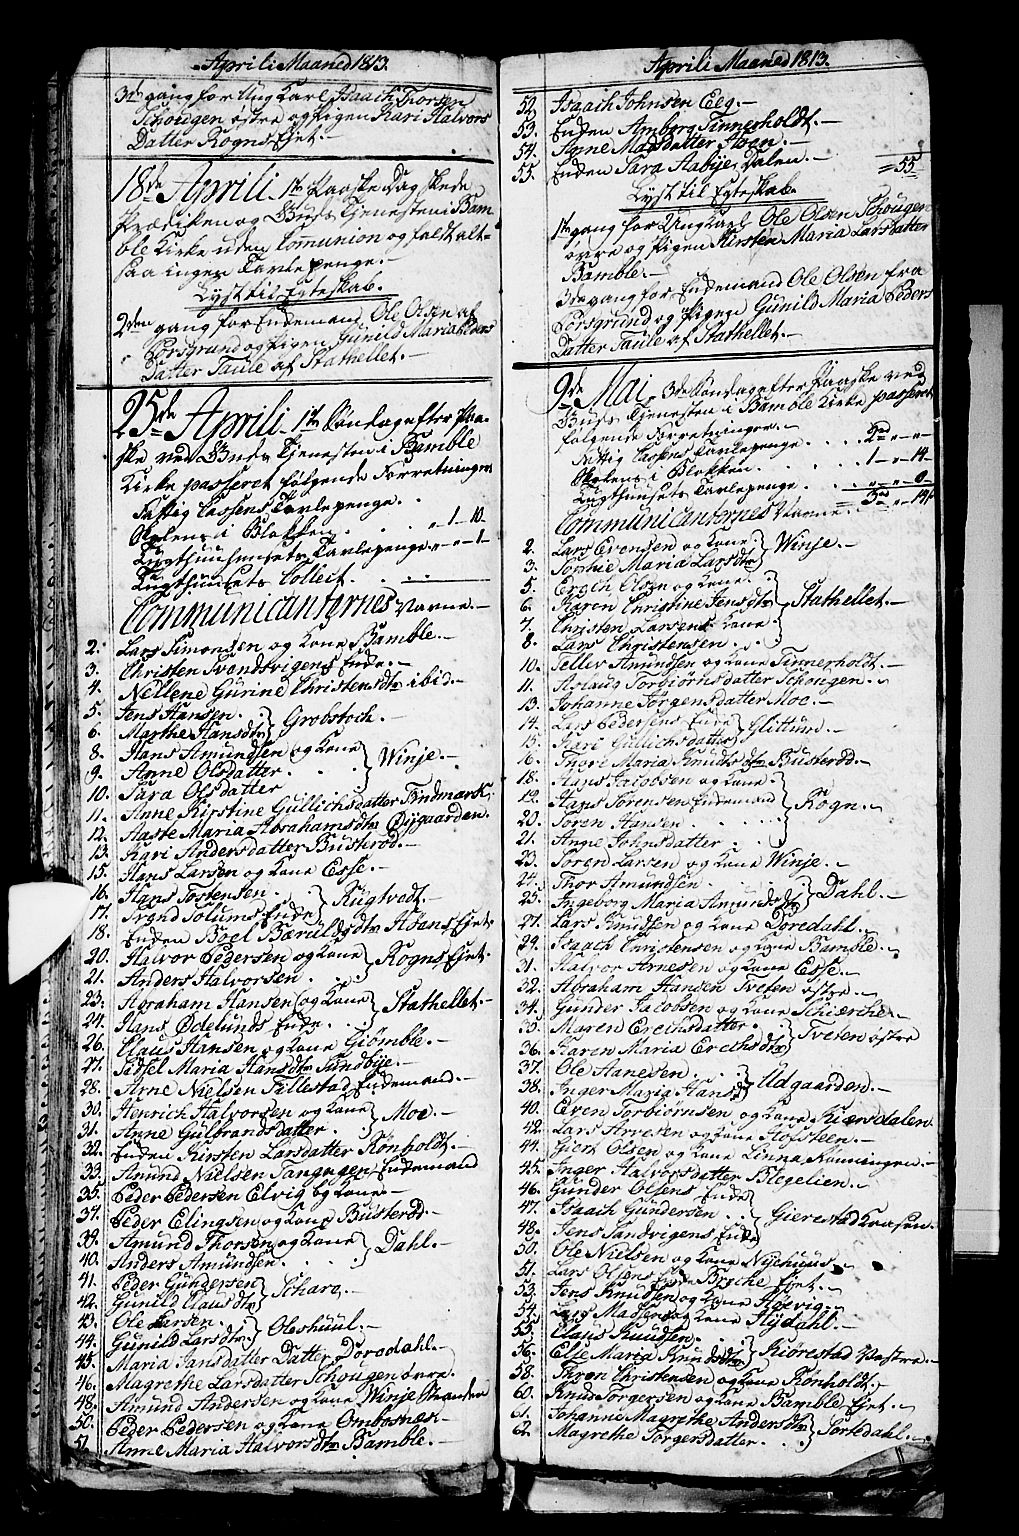 Aprili Maaned 1813.
3die gang for Ung Karl Isaach Thorsen
Schougen østre og Pigen Kari Halvors
Datter Rogns Ejet.
18de Aprili 1te Paaske Dag skede
Prædiken og Guds Tjenesten i Bam
ble Kirke uden Communion og faldt alt-
saa ingen Tavlepenge.-
Lyst til Egteskab.
2den gang for Enkemand Ole Olsen af
Porsgrund og Pigen Gunild Maria Peders
Datter Taule af Stathellet.-
25de Aprili 1te Søndag efter Paa-
ske ved Guds Tjenesten i Bamble
Kirke passeret følgende Forretninger
Fattig Cassens Tavlepenge.
Skolens i Blokken. 1-10-
Tugthuusets Tavlepenge. 1-
Tugthusets Collect.
Communicanternes Navne.-
2. Lars Simonsen og Kone Bamble.-
3. Christen Svendsvigens Enke.-
4. Nellene Gurine Christensdtr ibid.-
5. Jens Hansen.
6. Marthe Hansdtr } Grobstoch.-
8. Hans Amundsen og Kone
9. Anne Olsdatter. } Winje.-
10. Sara Olsdatter
11. Anne Kirstine Gullichsdatter Findmark.
12. Aaste Maria Abrahamsdtr Øygaarden.
13. Kari Andersdatter Bustrød.-
15. Hans Larsen og Kone Esse.-
16. Hans Torstensen.
17. Trond Solums Enke } Rugtvedt.-
18. Enken Boel Bæruldsdtr Aasens Ejet.
20. Halvor Pedersen og Kone
21. Anders Halvorsen. } Rogns Ejet.
23. Abraham Hansen og Kone
24. Hans Ødelunds Enke. } Stathellet.-
26. Claus Hansen og Kone Giømble.-
27. Sidsel Maria Hansdtr Sundbye.-
28. Arne Nielsen Fillestad Enkemand.-
30. Henrich Halvorsen og Kone
31. Anne Gulbrandsdatter } Moe.-
32. Enken Kirsten Larsdatter Rønholdt.-
33. Amund Nielsen Tangvgen Enkemand
35. Peder Pedersen Elvig og Kone.-
37. Peder Elingsen og Kone Busterød.-
39. Amund Thorsen og Kone
40. Anders Amundsen. } Dahl.-
41. Peder Gundersen
42. Gunild Clausdtr } Skare.-
43. Ole Larsen.
44. Gunild Larsdtr. } Oleshuul.-
45. Maria Jansdatter Datter Doredahl.-
46. Magrethe Larsdatter Schougen øvre.-
48. Amund Andersen og Kone Winje Stranden
50. Peder Pedersen og Kone Ombosnæs.-
51. Anne Maria Halvorsdtr Bamble.-
Aprili Maaned 1813.
52. Isaach Johnsen Eeg.-
53. Enken Amborg Finnerholdt.-
54. Anne Madsdatter Aasen.-
55. Enken Sara Aabye Dalen.- = 55
Lyst til Egteskab.
1te gang for Ung Karl Ole Olsen Schougen
øvre og Pigen Kirsten Maria Larsdatter
Bamble.-
3die gang for Enkemand Ole Olsen fra
Porsgrund og Pigen Gunild Maria Peders
Datter Taule af Stathellet.-
9de Mai, 3die Søndag efter Paaske ved
Guds Tjenesten i Bamble Kirke passeret
følgende Forretninger.
Fattig Cassens Tavlepenge.
Skolens i Blokken. 1-14-
Tugthusets Tavlepenge.
Communicanternes Navne.
2. Lars Evensen og Kone
3. Sophie Maria Larsdtr } Winje.-
5. Erich Olsen og Kone
6. Karen Christine Jensdtr
7. Christen Larsens Kone
8. Lars Christensen. } Stathellet.-
10. Tellev Amundsen og Kone Finnerholdt.-
11. Aslaug Torbiørnsdatter Schougen.-
13. Johanne Jørgensdatter Moe.-
14. Lars Pedersens Enke
15. Kari Gullichsdatter } Glittum.-
16. Thore Maria Knudsdtr Busterød.-
18. Hans Jacobsen og Kone
19. Hans Sørensen Enkemand
20. Søren Hansen
21. Anne Johnsdatter. } Rogn.-
23. Søren Larsen og Kone Winje.-
24. Thor Amundsen.
25. Ingeborg Maria Amundsdtr } Dahl.-
27. Lars Knudsen og Kone Doredahl.-
29. Isaach Christensen og Kone Bamble.-
31. Halvor Arnesen og Kone Esse.-
32. Abraham Hansen Tveten østre.-
34. Gunder Jacobsen og Kone Schierche.-
35. Maren Erichsdatter.
36. Karen Maria Erichsdtr } Tveten østre
37. Ole Hansen.
38. Inger Maria Hansd } Udgaarden.-
40. Even Torbiørnsen og Kone Kiærsdalen
42. Lars Arvesen og Kone Hofsteen.-
44. Giert Olsen og Kone Linna Rønningen.-
45. Inger Halvorsdatter Blegelien.-
46. Gunder Olsens Enke
47. Isaach Gundersen.
48. Jens Sandvigens Enke } Gierestad Kaasen.
50. Ole Nielsen og Kone Nyehuus.
51. Lars Olsens Enke Birche Ejet.-
53. Jens Knudsen og Kone Aasvig.-
54. Lars Madsen og Kone Flydahl.-
55. Claus Knudsen.
56. Elje Maria Knudsdtr } Kiørestad Vestre.-
58. Thron Christensen og Kone Rønholdt.-
60. Knud Torgersen og Kone Bamble Ejet.-
61. Johanne Magrethe Andersdtr
62. Magrethe Torgersdatter. } Sortedahl.-